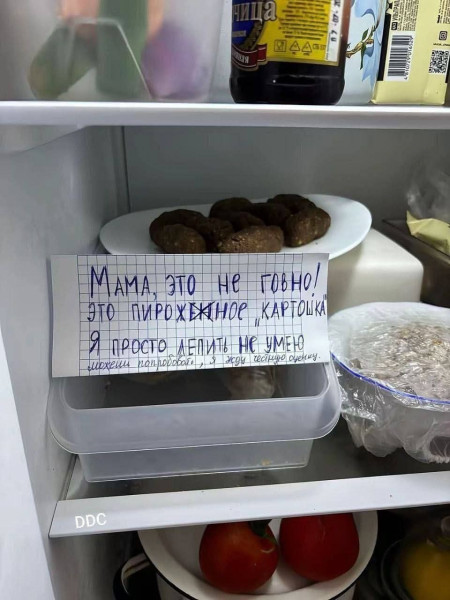 чица
МАМА, ЭТО НЕ ГОВНО!
ЭТО ПИРОЖНОЕ "КАРТОШКА"
Я ПРОСТО ЛЕПИТЬ НЕ УМЕЮ
можешь попробовать, я жду честную оценку.
DDC